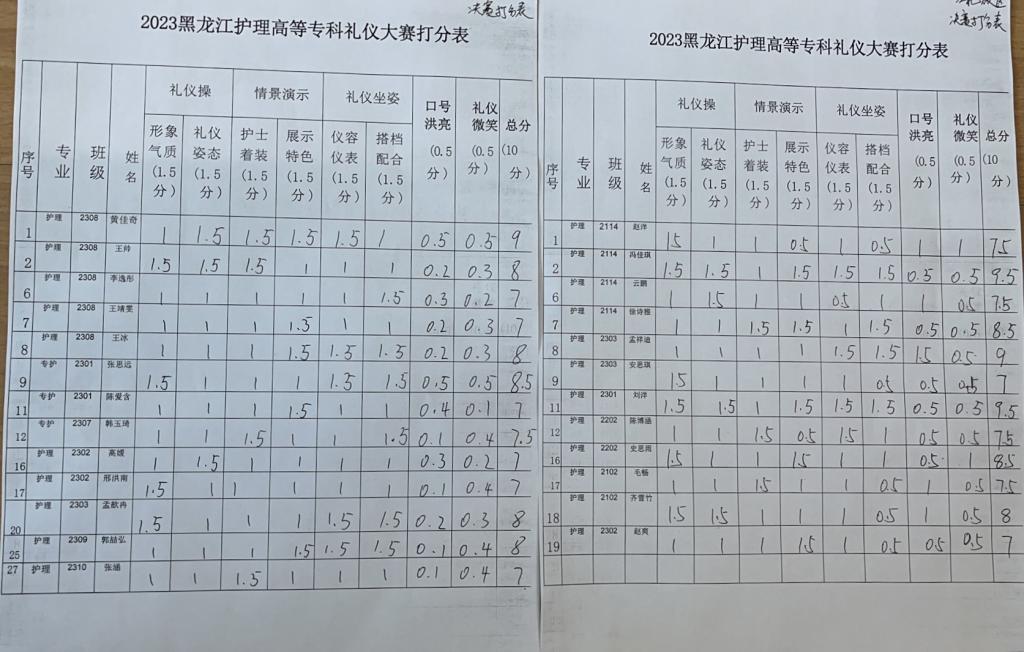 决赛打分表
2023黑龙江护理高等专科礼仪大赛打分表
序号 专业 班级 姓名 礼仪操 情景演示 礼仪坐姿 口号洪亮(0.5分) 礼仪微笑(0.5分) 总分(10分)
形象气质(1.5分) 礼仪姿态(1.5分) 护士着装(1.5分) 展示特色(1.5分) 仪容仪表(1.5分) 搭档配合(1.5分)
1 护理 2308 黄佳奇 1 1.5 1.5 1.5 1.5 1 0.5 0.5 9
2 护理 2308 王帅 1.5 1.5 1.5 1 1 1 0.2 0.3 8
6 护理 2308 李逸彤 1 1 1 1 1 1.5 0.3 0.2 7
7 护理 2308 王靖雯 1 1 1 1.5 1 1 0.2 0.3 7
8 护理 2308 王冰 1 1 1 1.5 1.5 1.5 0.2 0.3 8
9 专护 2301 张思远 1.5 1 1 1 1.5 1.5 0.5 0.5 8.5
11 专护 2301 陈爱含 1 1 1 1.5 1 1 0.4 0.1 7
12 专护 2307 韩玉琦 1 1 1.5 1 1 1.5 0.1 0.4 7.5
16 护理 2302 高媛 1 1.5 1 1 1 1 0.3 0.2 7
17 护理 2302 邢洪南 1.5 1 1 1 1 1 0.1 0.4 7
20 护理 2303 孟歆冉 1.5 1 1 1 1.5 1.5 0.2 0.3 8
25 护理 2309 郭喆弘 1 1 1 1.5 1.5 1.5 0.1 0.4 8
27 护理 2310 张涵 1 1 1.5 1 1 1 0.1 0.4 7
决赛打分表
2023黑龙江护理高等专科礼仪大赛打分表
序号 专业 班级 姓名 礼仪操 情景演示 礼仪坐姿 口号洪亮(0.5分) 礼仪微笑(0.5分) 总分(10分)
形象气质(1.5分) 礼仪姿态(1.5分) 护士着装(1.5分) 展示特色(1.5分) 仪容仪表(1.5分) 搭档配合(1.5分)
1 护理 2114 赵洋 1.5 1 1 0.5 1 0.5 1 1 7.5
2 护理 2114 冯佳琪 1.5 1.5 1 1.5 1.5 1.5 0.5 0.5 9.5
6 护理 2114 云鹏 1 1.5 1 1 0.5 1 1 0.5 7.5
7 护理 2114 徐诗雅 1 1 1.5 1.5 1 1.5 0.5 0.5 8.5
8 护理 2303 孟祥迪 1 1 1 1 1.5 1.5 1.5 0.5 9
9 护理 2303 安思琪 1.5 1 1 1 1 0.5 0.5 0.5 7
11 护理 2301 刘洋 1.5 1.5 1 1.5 1.5 1.5 0.5 0.5 9.5
12 护理 2202 陈博涵 1 1 1.5 0.5 1.5 1 0.5 0.5 7.5
16 护理 2202 史思雨 1.5 1 1 1.5 1 1 0.5 1 8.5
17 护理 2102 毛畅 1 1 1.5 1 1 0.5 1 0.5 7.5
18 护理 2102 齐雪竹 1.5 1.5 1 1 1 0.5 1 0.5 8
19 护理 2302 赵爽 1 1 1 1.5 1 0.5 0.5 0.5 7